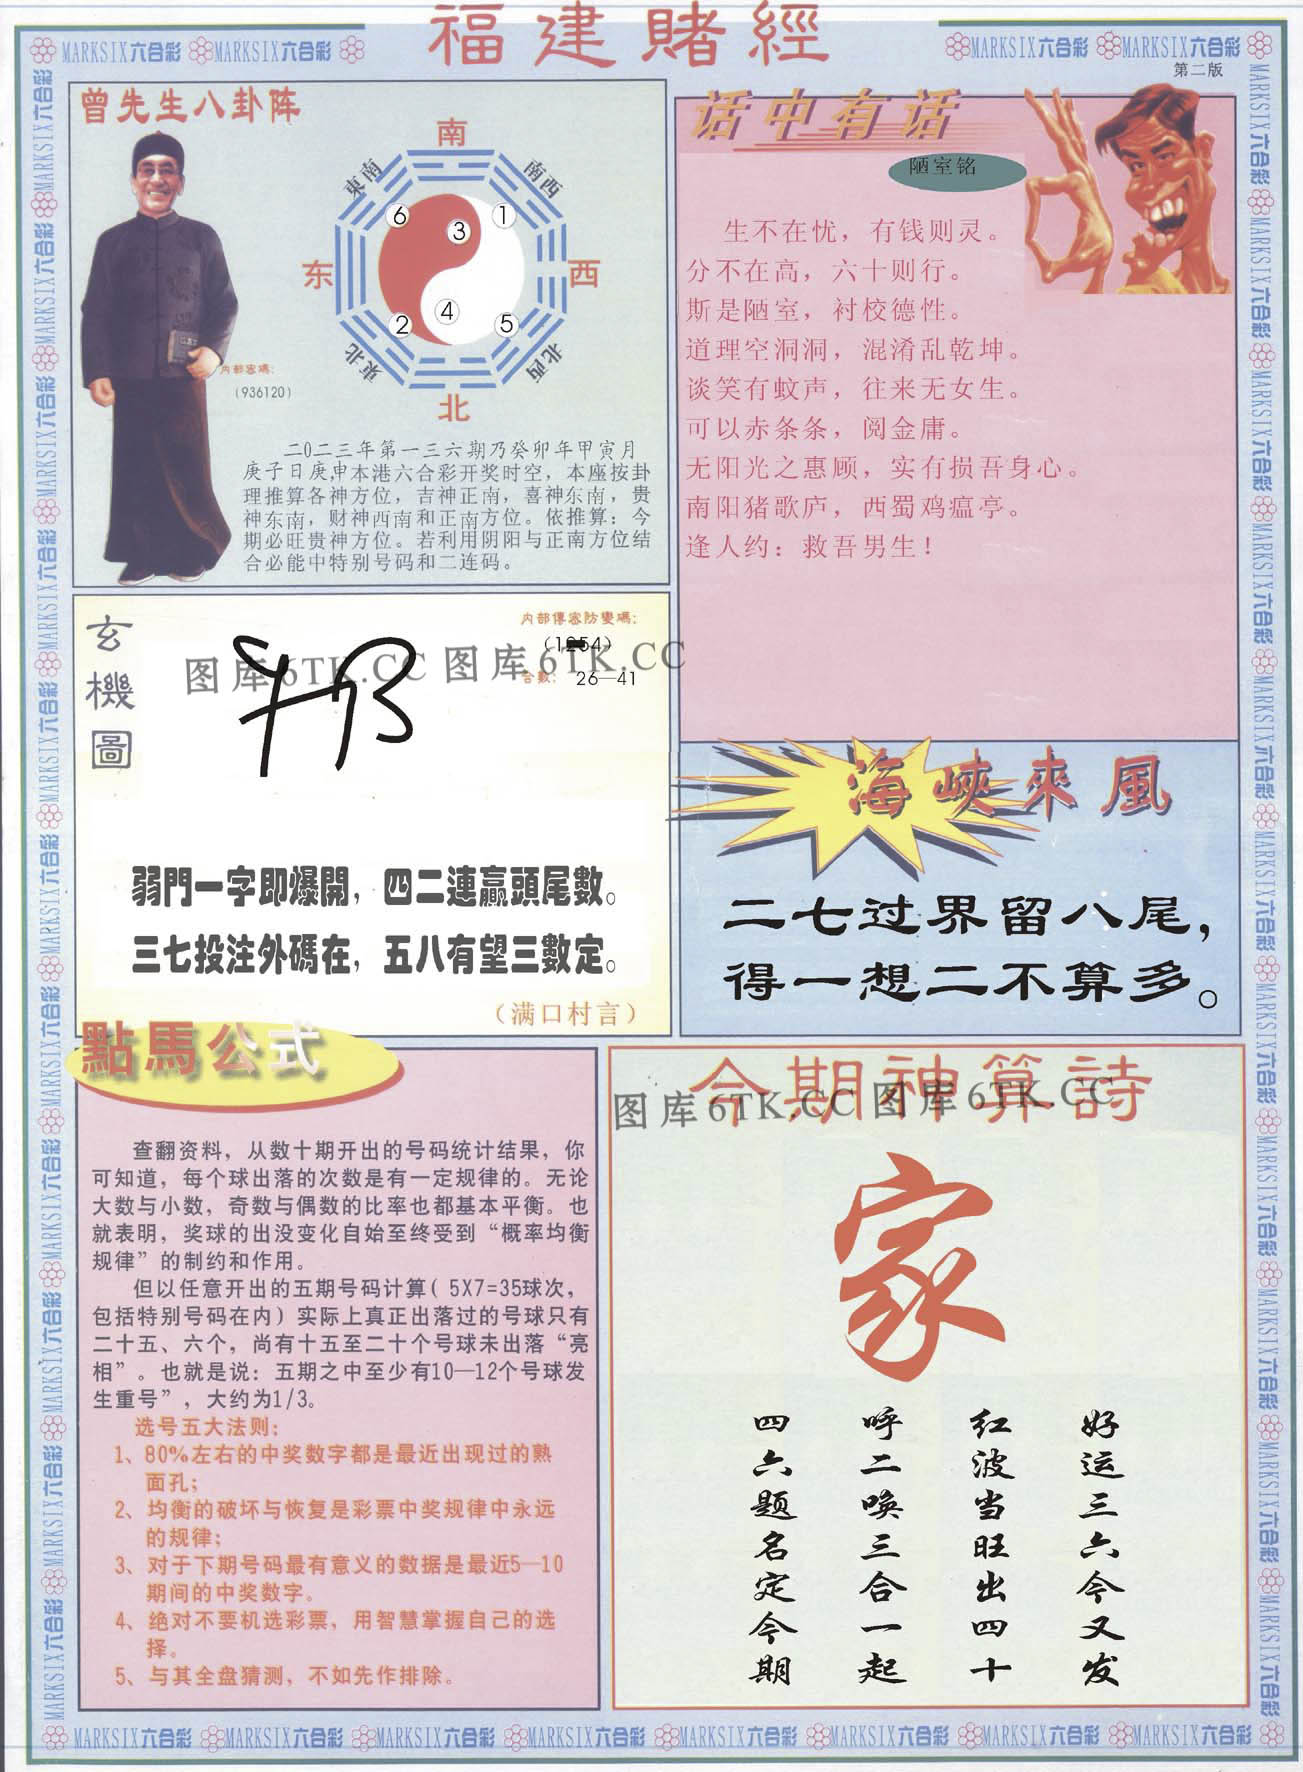 福建賭經
MARKSIX六合彩 MARKSIX六合彩
MARKSIX六合彩 MARKSIX六合彩
第二版
曾先生八卦阵
南
東南
南西
6
3
1
东
西
4
2
5
東北
北西
北
内部密碼:
(936120)
二0二三年第一三六期乃癸卯年甲寅月
庚子日庚申本港六合彩开奖时空，本座按卦
理推算各神方位，吉神正南，喜神东南，贵
神东南，财神西南和正南方位。依推算：今
期必旺贵神方位。若利用阴阳与正南方位结
合必能中特别号码和二连码。
话中有话
陋室铭
生不在忧，有钱则灵。
分不在高，六十则行。
斯是陋室，衬校德性。
道理空洞洞，混淆乱乾坤。
谈笑有蚊声，往来无女生。
可以赤条条，阅金庸。
无阳光之惠顾，实有损吾身心。
南阳猪歌庐，西蜀鸡瘟亭。
逢人约：救吾男生！
玄機圖
内部傳密防變碼:
合數: 26—41
图库6TK.CC 图库6TK.CC
弱門一字即爆開，四二連贏頭尾數。
三七投注外碼在，五八有望三數定。
（满口村言）
海峽來風
二七过界留八尾，
得一想二不算多。
點馬公式
查翻资料，从数十期开出的号码统计结果，你
可知道，每个球出落的次数是有一定规律的。无论
大数与小数，奇数与偶数的比率也都基本平衡。也
就表明，奖球的出没变化自始至终受到“概率均衡
规律”的制约和作用。
但以任意开出的五期号码计算( 5X7=35球次，
包括特别号码在内）实际上真正出落过的号球只有
二十五、六个，尚有十五至二十个号球未出落“亮
相”。也就是说：五期之中至少有10—12个号球发
生重号”，大约为1/3。
选号五大法则：
1、80%左右的中奖数字都是最近出现过的熟
面孔；
2、均衡的破坏与恢复是彩票中奖规律中永远
的规律；
3、对于下期号码最有意义的数据是最近5—10
期间的中奖数字。
4、绝对不要机选彩票，用智慧掌握自己的选
择。
5、与其全盘猜测，不如先作排除。
今期神算詩
图库6TK.CC 图库6TK.CC
家
好运三六今又发
红波当旺出四十
呼二唤三合一起
四六题名定今期
MARKSIX六合彩 MARKSIX六合彩 MARKSIX六合彩 MARKSIX六合彩 MARKSIX六合彩 MARKSIX六合彩 MARKSIX六合彩 MARKSIX六合彩